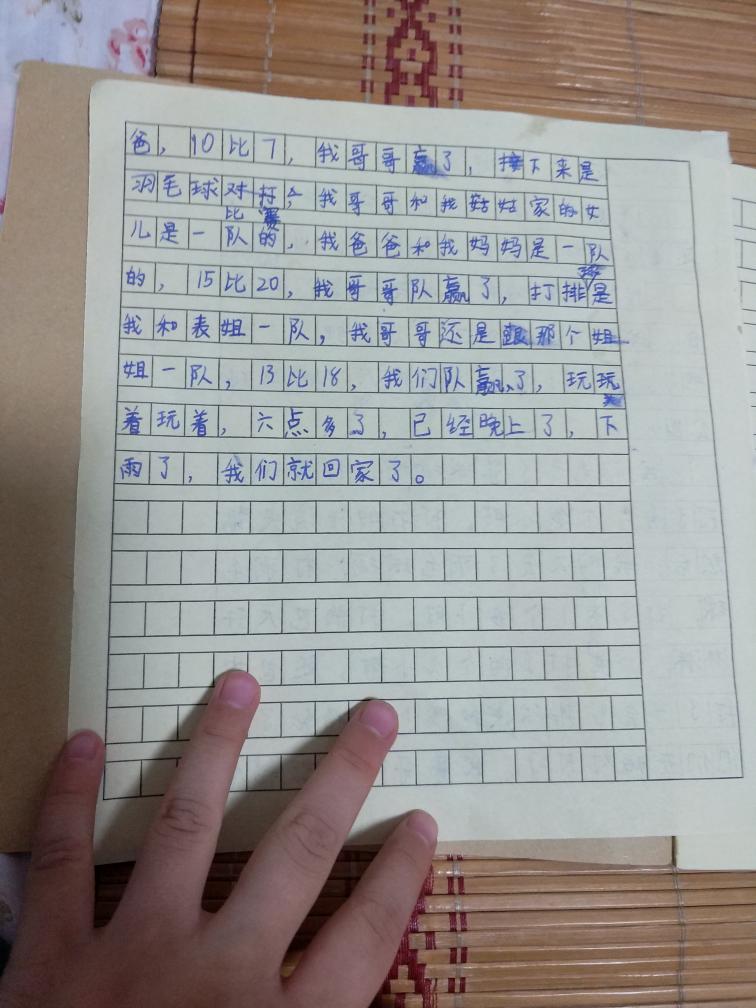 爸，10比7，我哥哥赢了，接下来是
羽毛球对打，我哥哥和我姑姑家的女
比赛
儿是一队的，我爸爸和我妈妈是一队
的，15比20，我哥哥队赢了，打排球是
我和表姐一队，我哥哥还是跟那个姐
姐一队，13比18，我们队赢了，玩
着玩着，六点多了，已经晚上了，下
雨了，我们就回家了。